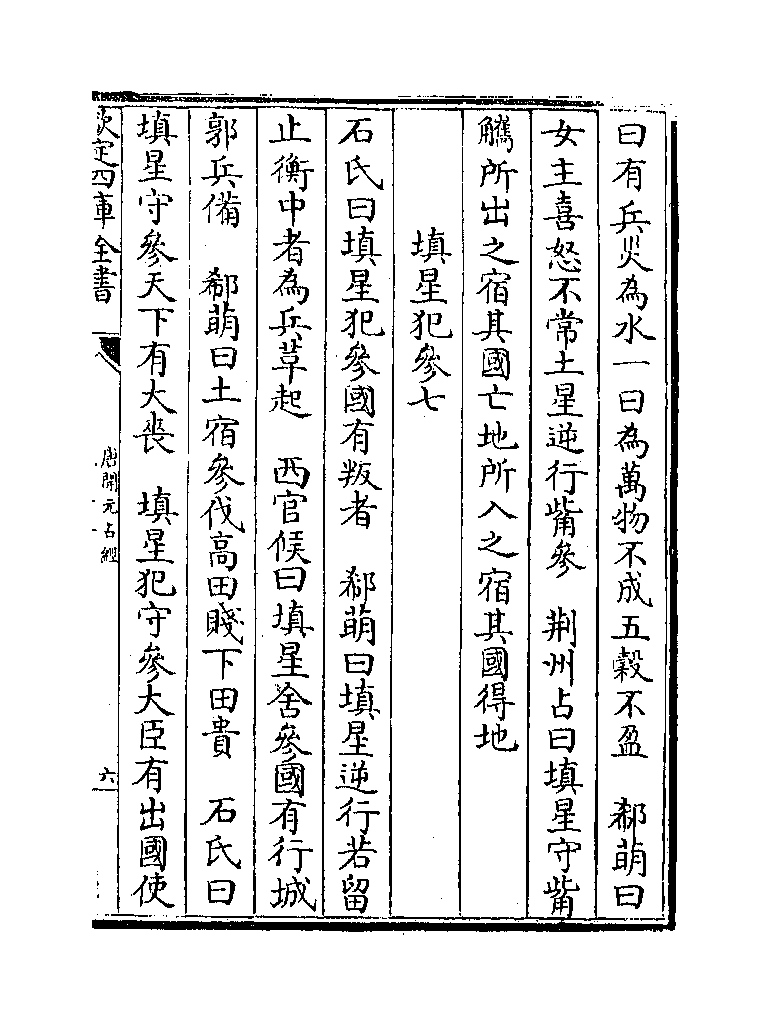 曰有兵災為水一曰為萬物不成五穀不盈　郗萌曰
女主喜怒不常土星逆行觜參　荆州占曰填星守觜
觿所出之宿其國亡地所入之宿其國得地
填星犯參七
石氏曰填星犯參國有叛者　郗萌曰填星逆行若留
止衡中者為兵草起　西官候曰填星舍參國有行城
郭兵備　郗萌曰土宿參伐高田賤下田貴　石氏曰
填星守參天下有大喪　填星犯守參大臣有出國使
欽定四庫全書
唐開元占經
六